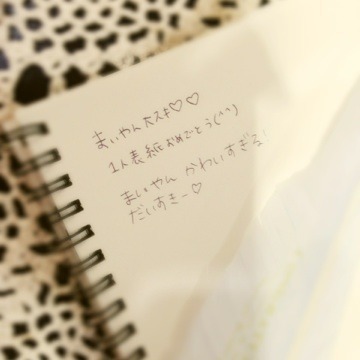 まいやん大スキ♡♡
1人表紙おめでとう(^^)
まいやん かわいすぎる!
だいすきー♡